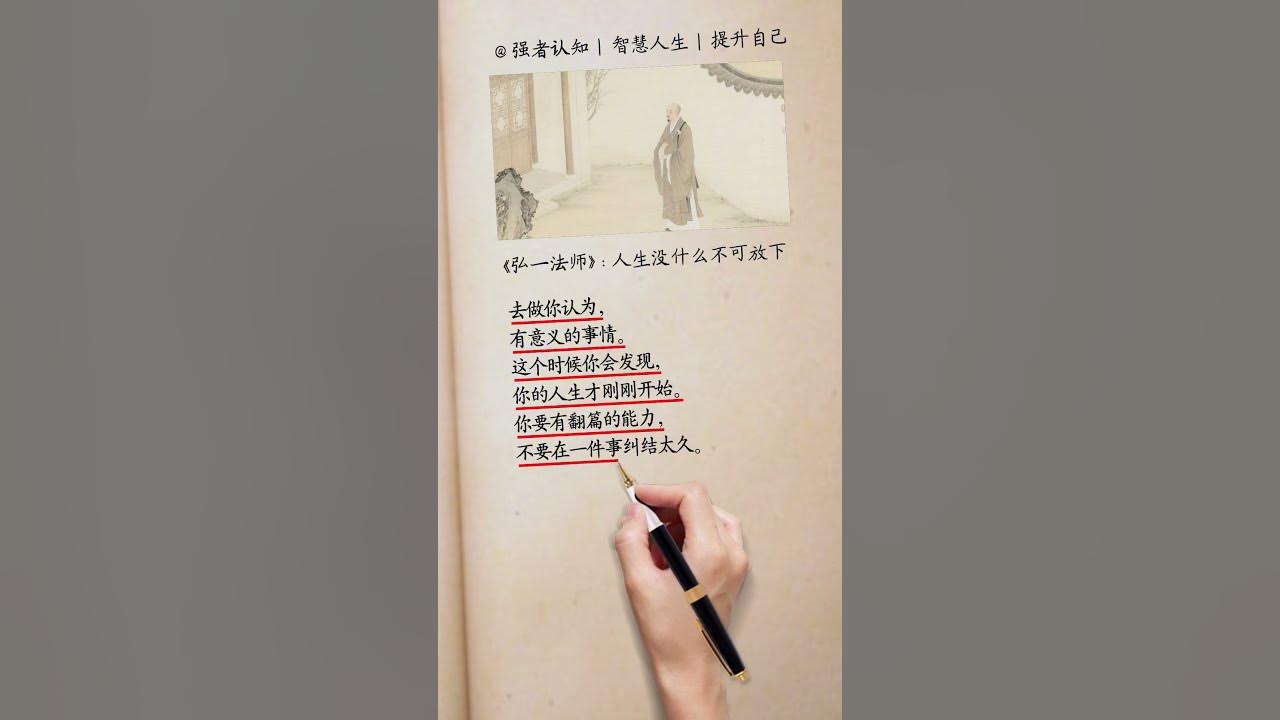 @强者认知 | 智慧人生 | 提升自己
《弘一法师》: 人生没什么不可放下
去做你认为,
有意义的事情。
这个时候你会发现,
你的人生才刚刚开始。
你要有翻篇的能力,
不要在一件事纠结太久。